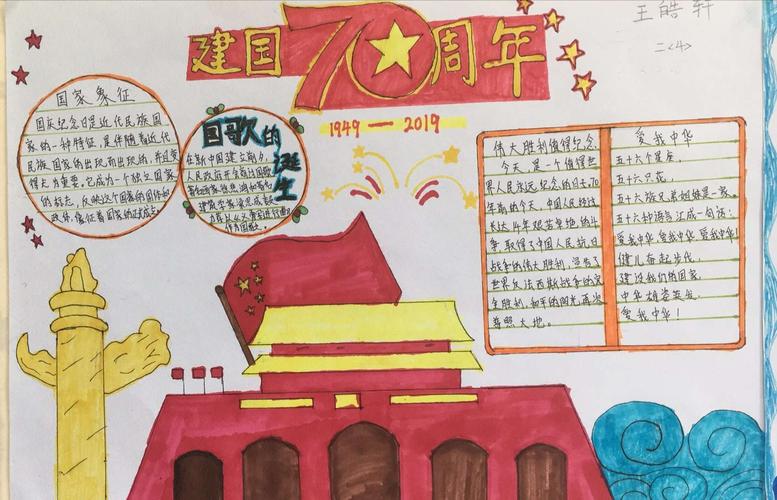 建国70周年
王皓轩
二<4>
1949 — 2019
国家象征
国庆纪念日是近代民族国
家的一种特征，是伴随着近代
民族国家的出现而出现的，并且变
得尤为重要。它成为一个独立国家
的标志，反映这个国家的国体和
政体，象征着国家的
国歌的诞生
在新中国建立前夕，
人民政府
伟大胜利值得纪念
今天，是一个值得世
界人民永远纪念的日子。70
年前的今天，中国人民经过
长达14年艰苦卓绝的斗
争，取得了中国人民抗日
战争的伟大胜利，宣告了
世界反法西斯战争的完
全胜利，和平的阳光再次
普照大地。
爱我中华
五十六个星座，
五十六只花，
五十六族兄弟姐妹是一家，
五十六种语言汇成一句话：
爱我中华 爱我中华 爱我中华！
健儿奋起步伐，
建设我们的国家，
中华雄姿英发，
爱我中华！